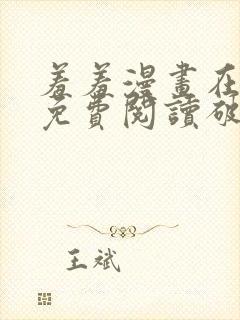 羞羞漫畫在
免費閱讀破
王斌